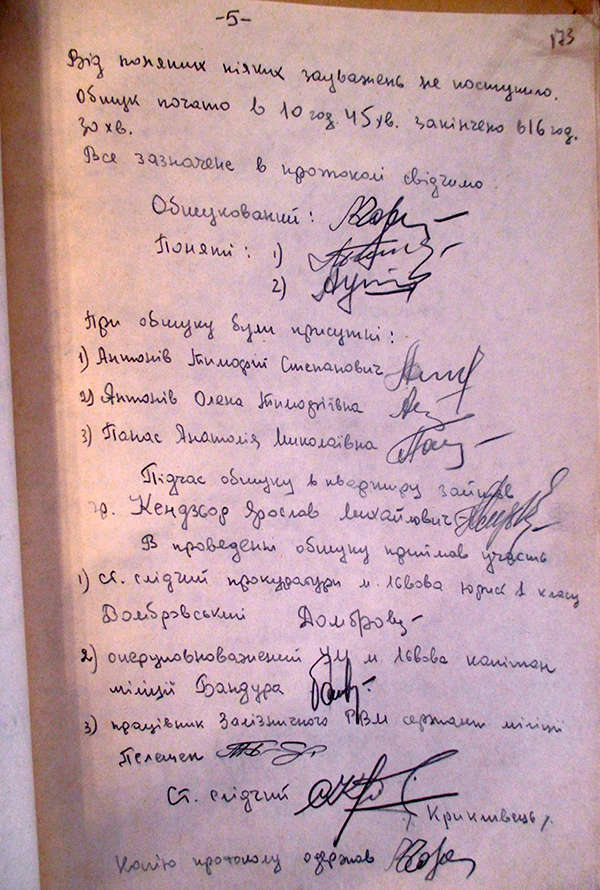 -5-
173
Від понятих ніяких зауважень не поступило.
Обшук почато в 10 год. 45 хв. закінчено в 16 год.
30 хв.
Все зазначене в протоколі свідчимо
Обшукований:
Поняті: 1)
2)
При обшуку були присутні:
1) Антонів Тимофій Степанович
2) Антонів Олена Тимофіївна
3) Панас Анатолія Миколаївна
Підчас обшуку в квартиру зайшов
гр. Кендзьор Ярослав Михайлович
В проведені обшуку приймав участь
1) ст. слідчий прокуратури м. Львова юрист 1 класу
Домбровський
2) оперуповноважений УУ м Львова капітан
міліції Бандура
3) працівник Залізничного РВМ сержант міліції
Пелешек
Ст. слідчий
/ Крикливець /
Копію протоколу одержав